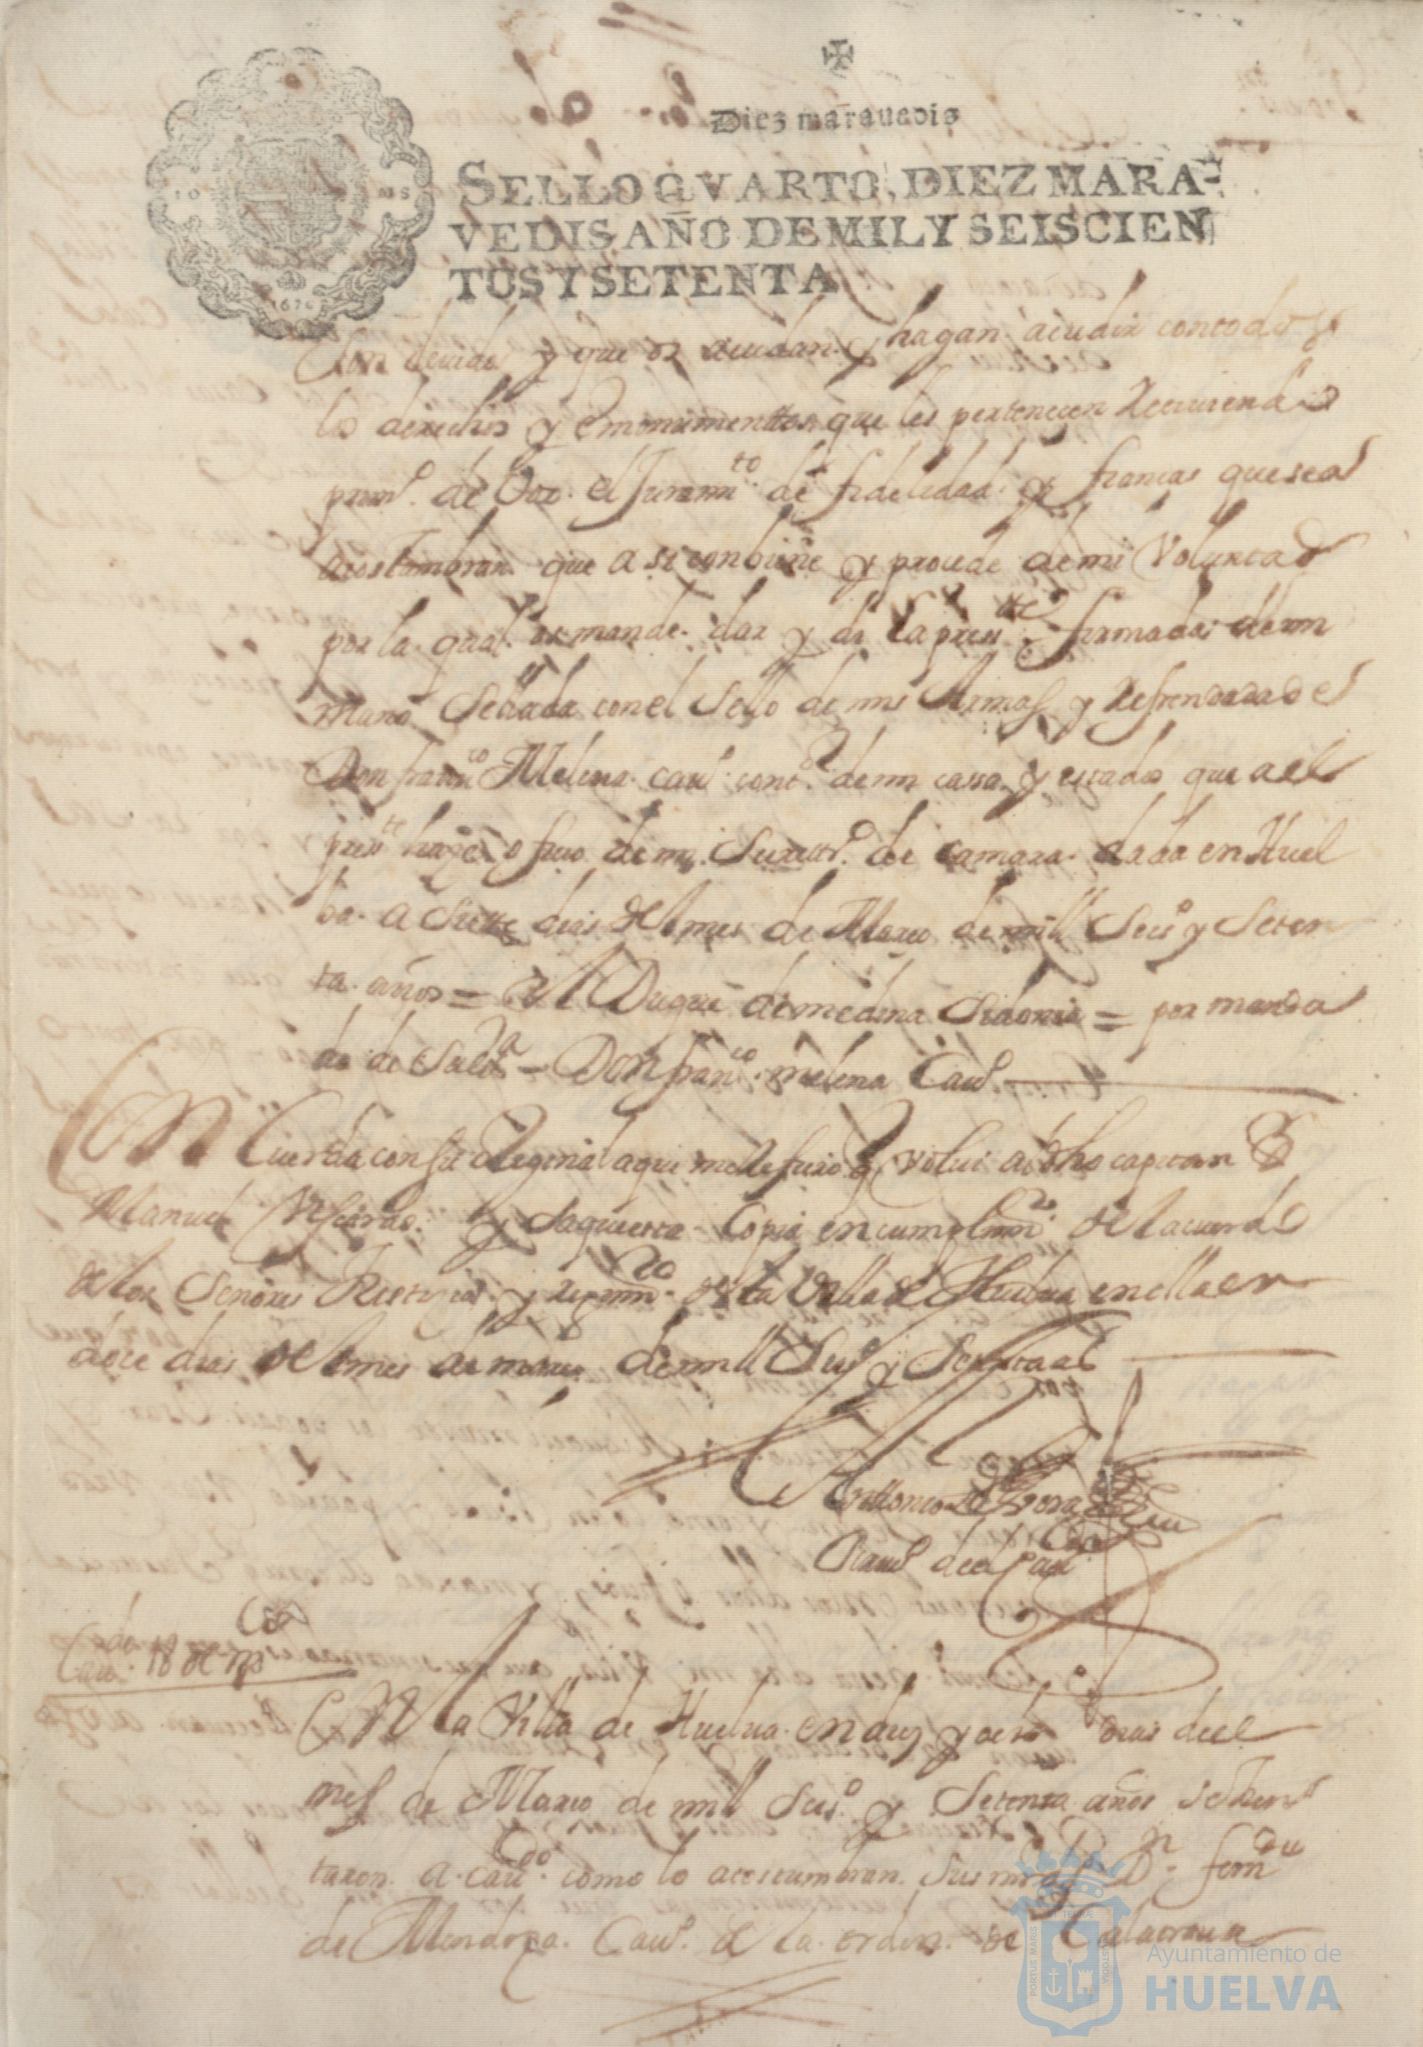 Diez marauedis
SELLO QVARTO, DIEZ MARA-
VEDIS AÑO DE MIL Y SEISCIEN
TOS Y SETENTA
1670
Con deuido y que os acudan y hagan acudir con todos
los derechos y emonumentos que les pertenecen Reciuiendo
prim.º de Vos el Juram.to de fidelidad y fianças que sea
acostumbran que a si conbiene y procede de mi Voluntad
por la qual os mande dar y di la press.te firmada de mi
mano Sellada con el Sello de mis Armas y Refrendada de
Don fran.co Melena cau.º cont.or de mi cassa y estados que a el
press.te haze ofiçio de mi Secrett.º de camara dada en Huel
ba a Siette dias del mes de Março de mill Seis.º y Seten
ta años = El Duque de medina Sidonia = por manda
do de Su Ex.a – Don fran.co melena Cau.º
Concuerda con su Original aqui me Refiero q volui a dho capitan D
Manuel y saque esta Copia en cumplim.to del acuerdo
de los Señores Justiçia y regim.to desta Villa de Huelua en ella en
doce dias del mes de março de mill Seis.º y Setenta as
Anttonio de
Escriu.º del Cau.º
Cau.do 18 de Mço
En la Villa de Huelua en diez y ocho dias del
mes de Março de mill Seis.º y Setenta años se Jun
taron a Cau.do como lo acostumbran sus mrds D.n fern.do
de Mendoça Cau.º de la orden de Calatraua
PORTUS MARIS
CUSTODIA
Ayuntamiento de
HUELVA